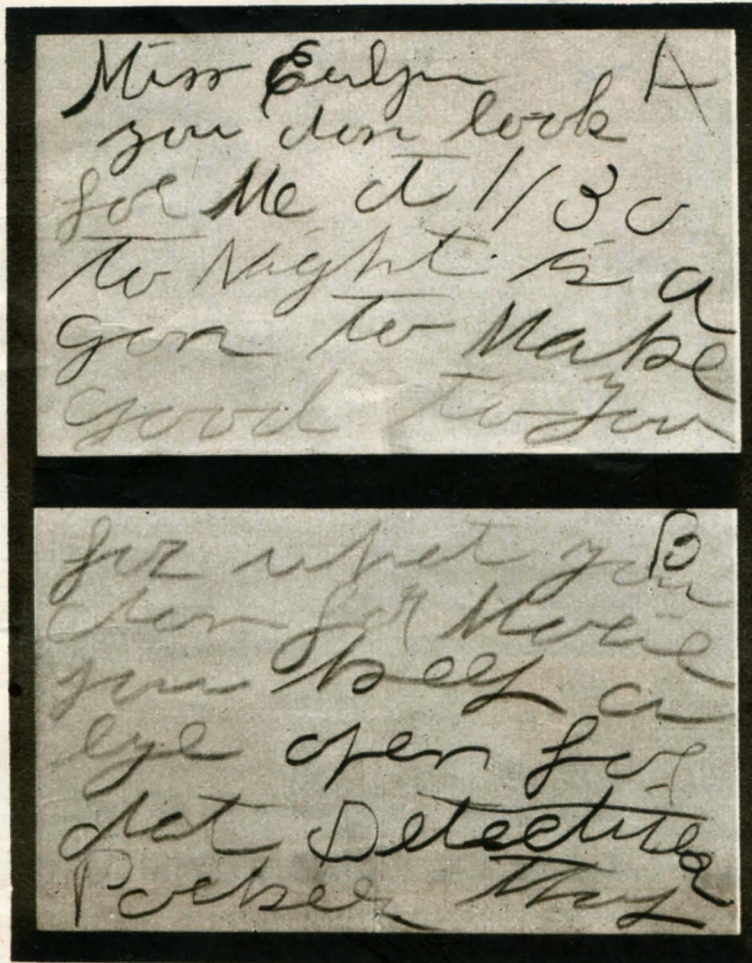 Miss Evelyn A
you don look
for Me at 1130
to Night is a
gon to Make
good to you
for what you B
don for Marie
you keep a
eye open for
dat Detective
Parker they